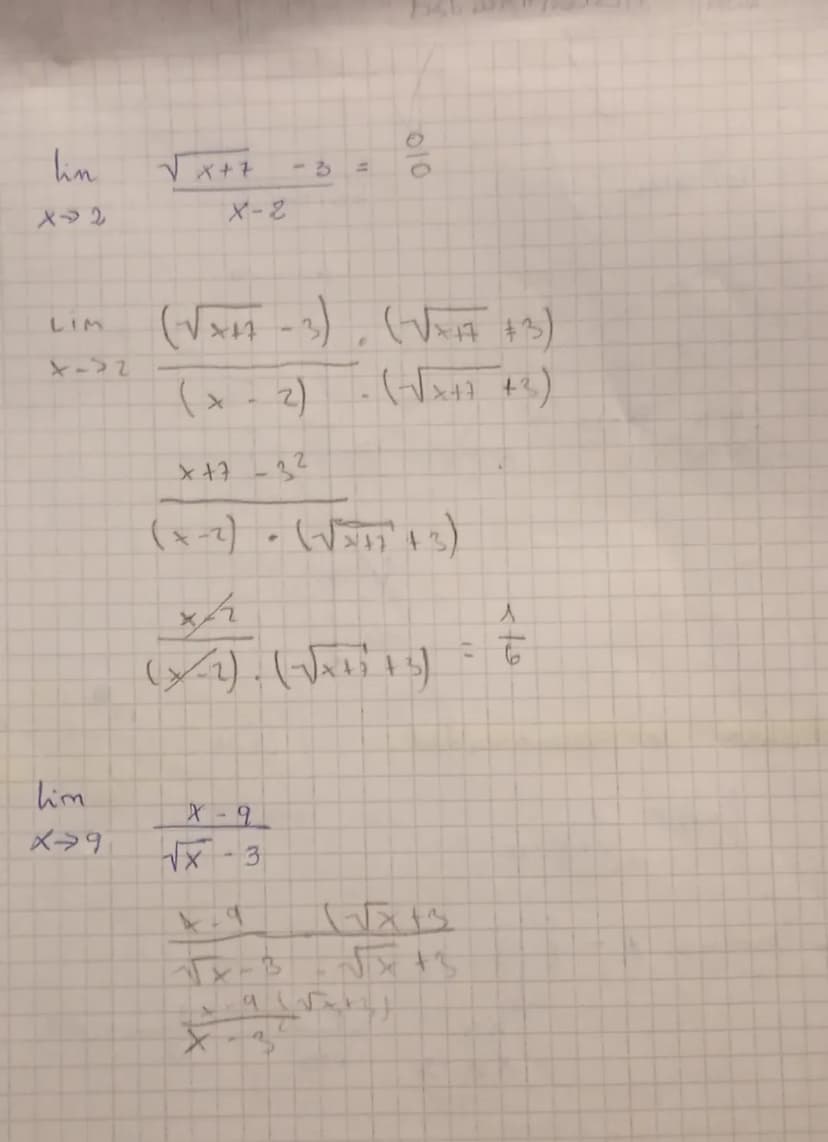 lim √(x+7) - 3 / x-2 = 0/0
x→2
Lim (√(x+7) - 3) · (√(x+7) +3) / (x - 2) · (√(x+7) +3)
x→2
x+7 - 3² / (x-2) · (√(x+7) + 3)
x-2 / (x-2) · (√(x+7) + 3) = 1/6
lim x - 9 / √x - 3
x→9
x-9 · (√x +3 / √x - 3 · √x +3
x-9 (√x+3) / x - 3²